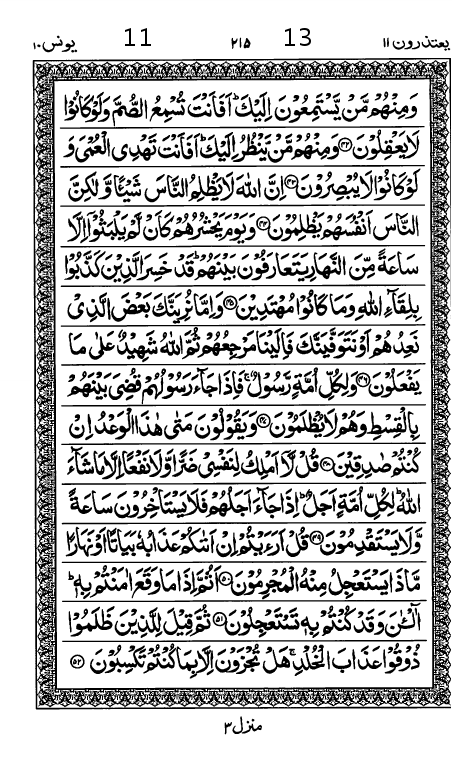 يعتذرون ١١ 13 ٢١٥ 11 يونس ١٠
وَمِنْهُمْ مَّنْ يَّسْتَمِعُوْنَ اِلَيْكَ ؕ اَفَاَنْتَ تُسْمِعُ الصُّمَّ وَلَوْ كَانُوْا
لَا يَعْقِلُوْنَ ﴿۴۲﴾ وَمِنْهُمْ مَّنْ يَّنْظُرُ اِلَيْكَ ؕ اَفَاَنْتَ تَهْدِى الْعُمْىَ وَ
لَوْ كَانُوْا لَا يُبْصِرُوْنَ ﴿۴۳﴾ اِنَّ اللّٰهَ لَا يَظْلِمُ النَّاسَ شَيْـًٔا وَّلٰكِنَّ
النَّاسَ اَنْفُسَهُمْ يَظْلِمُوْنَ ﴿۴۴﴾ وَيَوْمَ يَحْشُرُهُمْ كَاَنْ لَّمْ يَلْبَثُوْۤا اِلَّا
سَاعَةً مِّنَ النَّهَارِ يَتَعَارَفُوْنَ بَيْنَهُمْ ؕ قَدْ خَسِرَ الَّذِيْنَ كَذَّبُوْا
بِلِقَآءِ اللّٰهِ وَمَا كَانُوْا مُهْتَدِيْنَ ﴿۴۵﴾ وَاِمَّا نُرِيَنَّكَ بَعْضَ الَّذِىْ
نَعِدُهُمْ اَوْ نَتَوَفَّيَنَّكَ فَاِلَيْنَا مَرْجِعُهُمْ ثُمَّ اللّٰهُ شَهِيْدٌ عَلٰى مَا
يَفْعَلُوْنَ ﴿۴۶﴾ وَلِكُلِّ اُمَّةٍ رَّسُوْلٌ ۚ فَاِذَا جَآءَ رَسُوْلُهُمْ قُضِىَ بَيْنَهُمْ
بِالْقِسْطِ وَهُمْ لَا يُظْلَمُوْنَ ﴿۴۷﴾ وَيَقُوْلُوْنَ مَتٰى هٰذَا الْوَعْدُ اِنْ
كُنْتُمْ صٰدِقِيْنَ ﴿۴۸﴾ قُلْ لَّاۤ اَمْلِكُ لِنَفْسِىْ ضَرًّا وَّلَا نَفْعًا اِلَّا مَا شَآءَ
اللّٰهُ ؕ لِكُلِّ اُمَّةٍ اَجَلٌ ؕ اِذَا جَآءَ اَجَلُهُمْ فَلَا يَسْتَاْخِرُوْنَ سَاعَةً
وَّلَا يَسْتَقْدِمُوْنَ ﴿۴۹﴾ قُلْ اَرَءَيْتُمْ اِنْ اَتٰٮكُمْ عَذَابُهٗ بَيَاتًا اَوْ نَهَارًا
مَّاذَا يَسْتَعْجِلُ مِنْهُ الْمُجْرِمُوْنَ ﴿۵۰﴾ اَثُمَّ اِذَا مَا وَقَعَ اٰمَنْتُمْ بِهٖ ؕ
آٰلْـٰٔنَ وَقَدْ كُنْتُمْ بِهٖ تَسْتَعْجِلُوْنَ ﴿۵۱﴾ ثُمَّ قِيْلَ لِلَّذِيْنَ ظَلَمُوْا
ذُوْقُوْا عَذَابَ الْخُلْدِ ۚ هَلْ تُجْزَوْنَ اِلَّا بِمَا كُنْتُمْ تَكْسِبُوْنَ ﴿۵۲﴾
منزل ٣